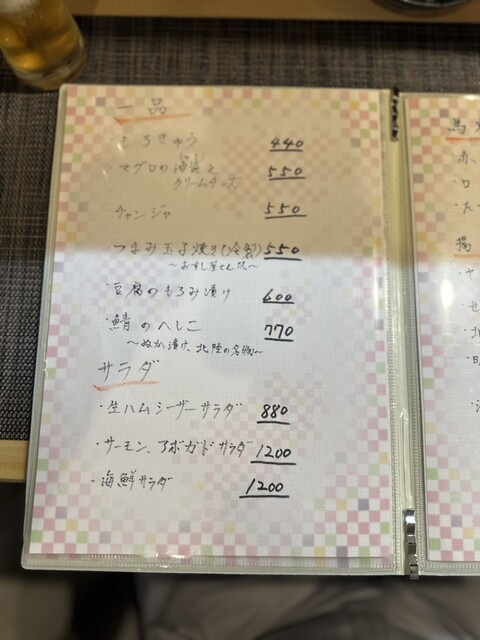 一品
・もろきゅう 440
・マグロの酒盗と
クリームチーズ 550
・チャンジャ 550
・つまみ玉子焼き(冷製) 550
～おすし屋さん風～
・豆腐のもろみ漬け 600
・鯖のへしこ 770
～ぬか漬け、北陸の名物～
サラダ
・生ハムシーザーサラダ 880
・サーモン、アボガドサラダ 1200
・海鮮サラダ 1200
馬
・赤
・ロ
・た
揚